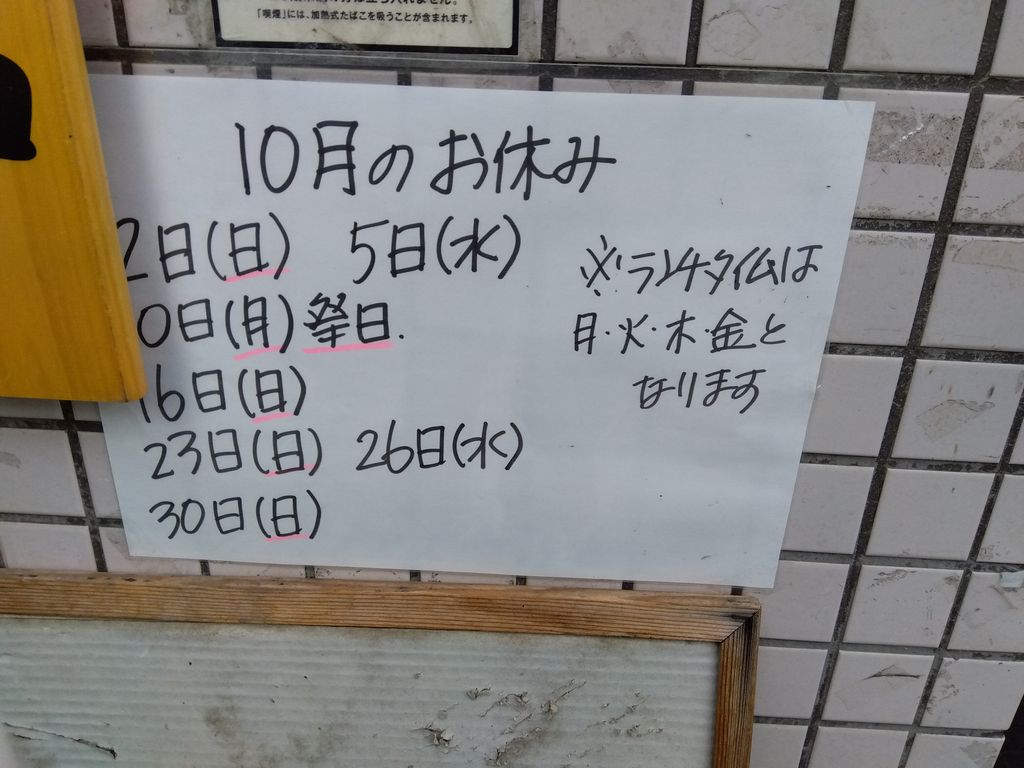 「喫煙」には、加熱式たばこを吸うことが含まれます。
10月のお休み
2日(日) 5日(水)
0日(月) 祭日.
16日(日)
23日(日) 26日(水)
30日(日)
※ランチタイムは
月・火・木・金と
なります